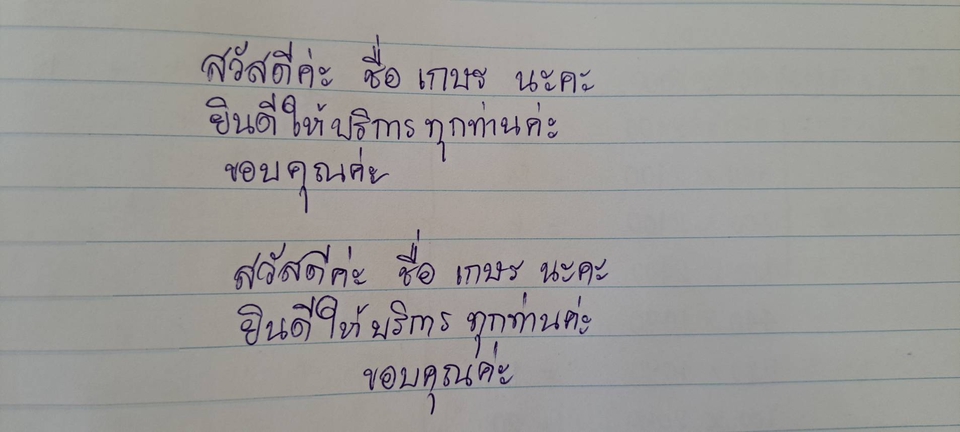 สวัสดีค่ะ ชื่อ เกษร นะคะ
ยินดีให้บริการ ทุกท่านค่ะ
ขอบคุณค่ะ
สวัสดีค่ะ ชื่อ เกษร นะคะ
ยินดีให้บริการ ทุกท่านค่ะ
ขอบคุณค่ะ